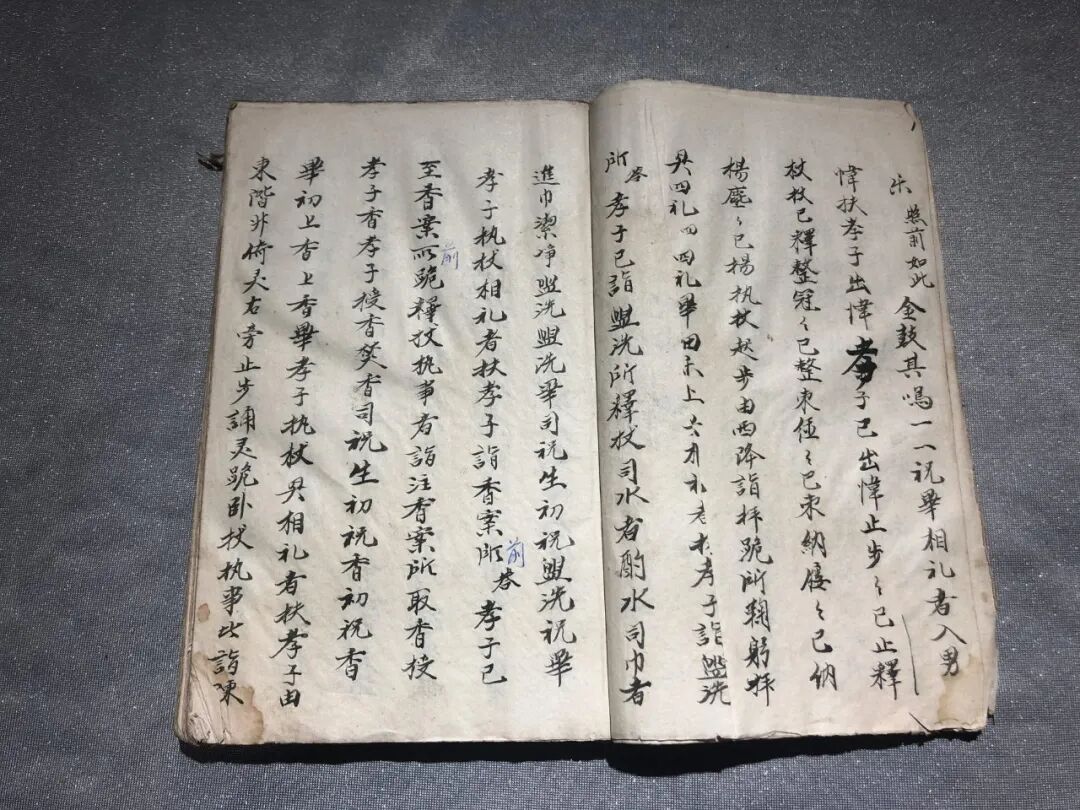 乐 照前如此 金鼓其鳴一一祝畢相礼者入男
幃扶孝子出幃孝子已出幃止步〻已止釋
杖杖已釋整冠〻已整束絰〻已束納履〻已納
楊塵〻已楊执杖起步由西降詣拜跪所鞠躬拜
具四礼四四礼畢田 上 礼者扶孝子詣盥洗
所答孝子已詣盥洗所釋杖司水者酌水司巾者
進巾潔净盥洗盥洗畢司祝生初祝盥洗祝畢
孝子执杖相礼者扶孝子詣香案前所答孝子已
至香案前所跪釋杖执事者詣注香案所取香授
孝子香孝子授香焚香司祝生初祝香初祝香
畢初上香上香畢孝子执杖具相礼者扶孝子由
東階升倚灵右旁止步誦灵跪卧杖执事比詣陳